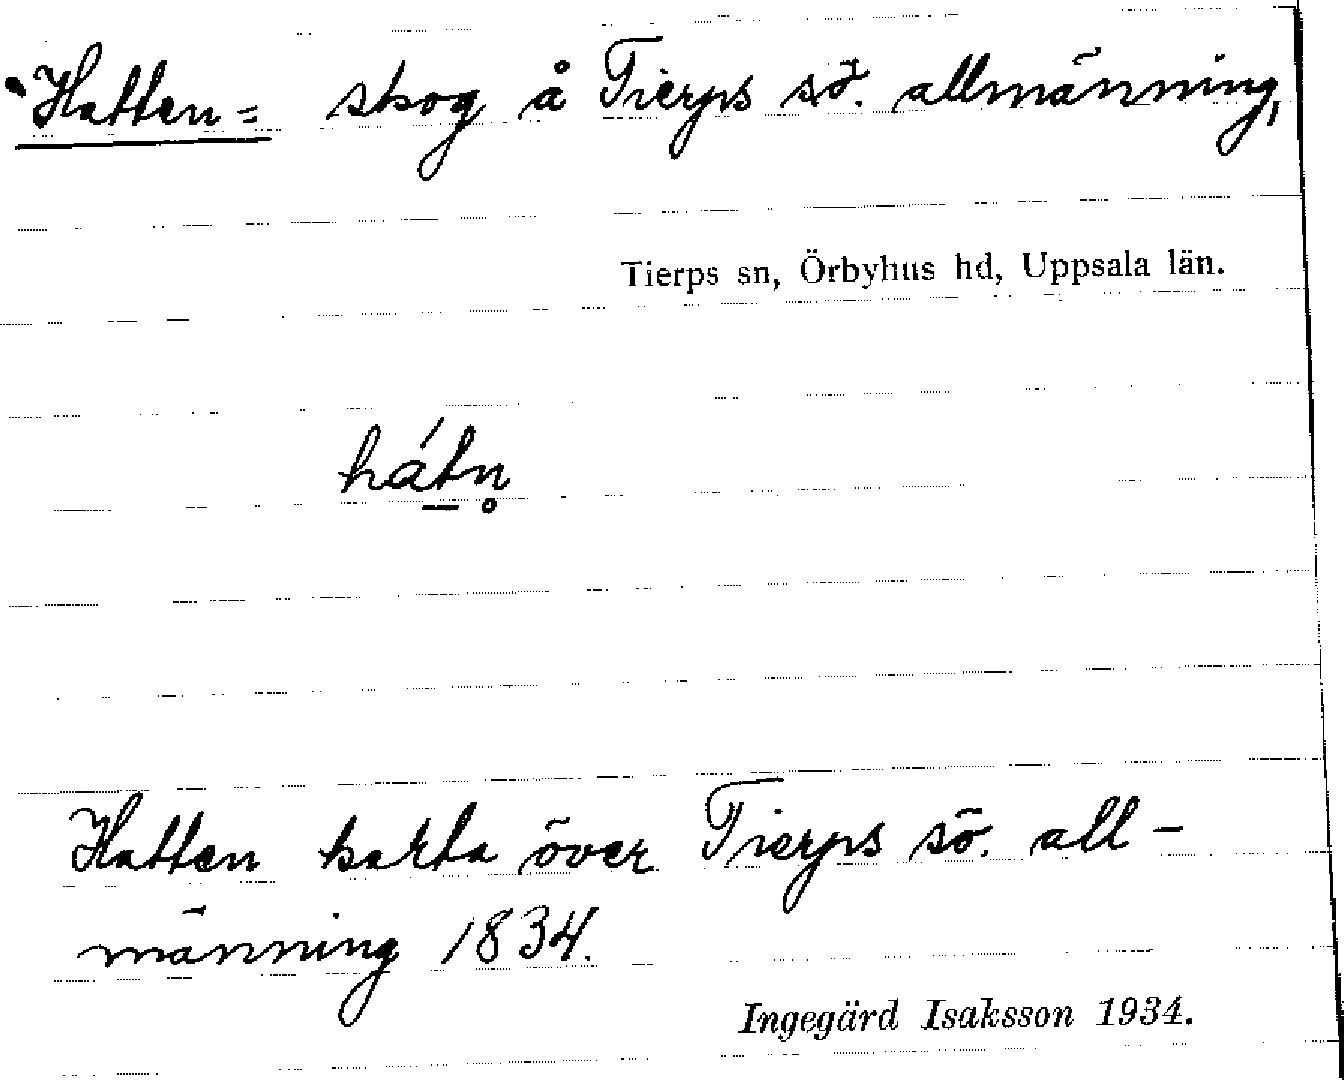 Hatten = skog å Tierps sö. allmänning,
Tierps sn, Örbyhus hd, Uppsala län.
hátn̥
Hatten karta över Tierps sö. all-
männing 1834.
Ingegärd Isaksson 1934.